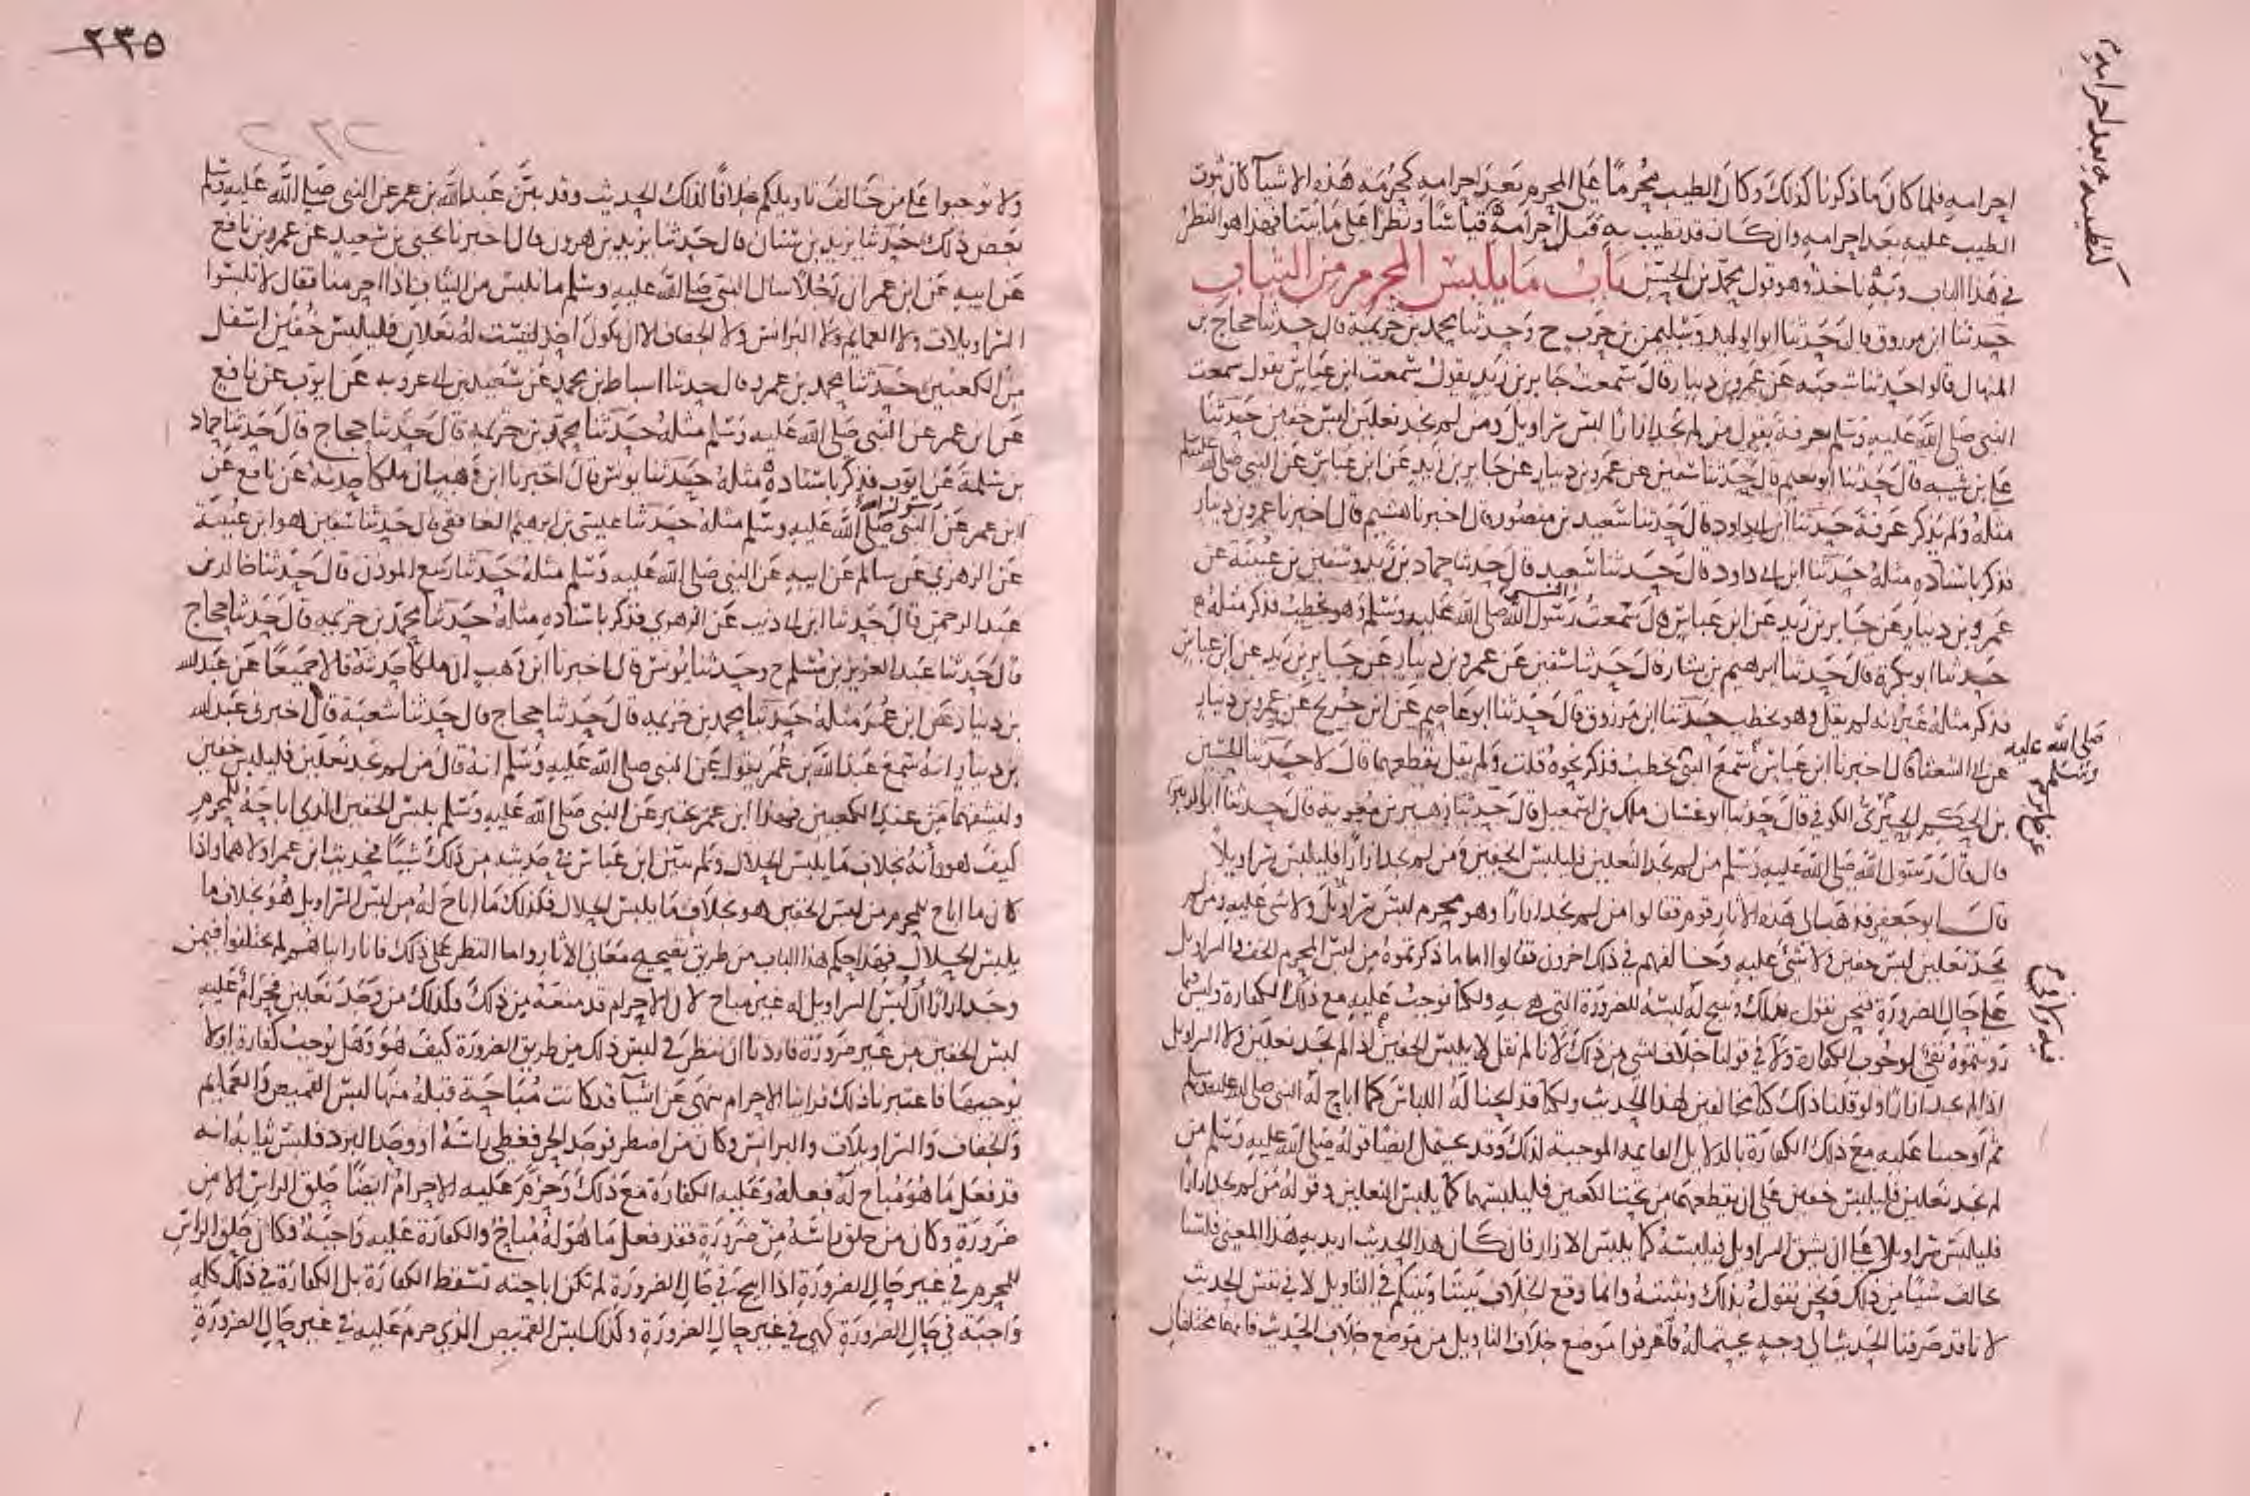 احرامه فلما كان ما ذكرنا كذلك وكان الطيب محرما على المحرم بعد احرامه كحرمة هذه الاشيآ كان ثبوت
الطيب عليه بعد احرامه وان كان قد تطيب به قبل احرامه قياسا ونظرا على ما بينا فهذا هو النظر
في هذا الباب وبه ناخذ وهو قول محمد بن الحسن باب ما يلبس المحرم من الثياب
حدثنا ابن مرزوق قال حدثنا ابو الوليد وسليمن بن حرب ح وحدثنا محمد بن خزيمة قال حدثنا حجاج بن
المنهال قالوا حدثنا شعبه عن عمرو بن دينار قال سمعت جابر بن زيد يقول سمعت ابن عباس يقول سمعت
النبي صلى الله عليه وسلم بعرفة يقول من لم يجد ازارا لبس سراويل ومن لم يجد نعلين لبس خفين حدثنا
علي بن شيبه قال حدثنا ابو نعيم قال حدثنا سفين عن عمرو بن دينار عن جابر بن زيد عن ابن عباس عن النبي صلى الله عليه وسلم
مثله ولم يذكر عرفة حدثنا ابن ابي داود قال حدثنا سعيد بن منصور قال اخبرنا هشيم قال اخبرنا عمرو بن دينار
فذكر باسناده مثله حدثنا ابن ابي داود قال حدثنا سعيد قال حدثنا حماد بن زيد وسفين بن عيينة عن
عمرو بن دينار عن جابر بن زيد عن ابن عباس قال سمعت رسول الله صلى الله عليه وسلم وهو يخطب فذكر مثله
حدثنا ابو بكرة قال حدثنا ابرهيم بن بشار قال حدثنا سفين عن عمرو بن دينار عن جابر بن زيد عن ابن عباس
فذكر مثله غير انه لم يقل وهو يخطب حدثنا ابن مرزوق قال حدثنا ابو عاصم عن ابن جريج عن عمرو بن دينار
عن ابي الشعثا قال اخبرنا ابن عباس سمع النبي يخطب فذكر نحوه قلت ولم يقل يقطعهما قال لا حدثنا الحسين
بن الحكم الحبري الكوفي قال حدثنا ابو غسان ملك بن اسمعيل قال حدثنا زهير بن معوية قال حدثنا ابو الزبير
قال قال رسول الله صلى الله عليه وسلم من لم يجد النعلين فليلبس الخفين ومن لم يجد ازارا فليلبس سراويلا
قال ابو جعفر فذهب الى هذه الاثار قوم فقالوا من لم يجد ازارا وهو محرم لبس سراويل ولا شي عليه ومن لم
يجد نعلين لبس خفين ولا شي عليه وخالفهم في ذلك اخرون فقالوا اما ما ذكرتموه من لبس المحرم الخف والسراويل
على حال الضرورة فنحن نقول بذلك ونبيح له لبسه للضرورة التي هي به ولكنا نوجب عليه مع ذلك الكفارة وليس فيما
رويتموه نفي لوجوب الكفارة ولا في قولنا خلاف لشي من ذلك لانا لم نقل لا يلبس الخفين اذا لم يجد نعلين ولا السراويل
اذا لم يجد ازارا ولو قلنا ذلك كنا مخالفين لهذا الحديث ولكنا قد ابحنا له اللباس كما اباح له النبي صلى الله عليه وسلم
ثم اوجبنا عليه مع ذلك الكفارة بالدلايل القايمه الموجبة لذلك وقد يحتمل ايضا قوله صلى الله عليه وسلم من
لم يجد نعلين فليلبس خفين على ان يقطعهما من تحت الكعبين فليلبسهما كما يلبس النعلين وقوله من لم يجد ازارا
فليلبس سراويلا على ان يشق السراويل فيلبسه كما يلبس الازار فان كان هذا الحديث اريد به هذا المعنى فلسنا
نخالف شيا من ذلك فنحن نقول بذلك ونثبته وانما وقع الخلاف بيننا وبينكم في التاويل لا في نفس الحديث
لانا قد صرفنا الحديث الى وجه يحتمله فاعرفوا موضع خلاف التاويل من موضع خلاف الحديث فانهما مختلفان
كتطيبه به بعد احرامه
صلى الله عليه وسلم
فيه كراخ م
٢٣٥
٢٣٢
ولا توجبوا على من خالف تاويلكم خلافا لذلك الحديث وقد بين عبد الله بن عمر عن النبي صلى الله عليه وسلم
بعض ذلك حدثنا يزيد بن سنان قال حدثنا يزيد بن هرون قال اخبرنا يحيى بن سعيد عن عمرو بن نافع
عن ابيه عن ابن عمر ان رجلا سال النبي صلى الله عليه وسلم ما نلبس من الثياب اذا احرمنا فقال لا تلبسوا
السراويلات ولا العمايم ولا البرانس ولا الخفاف الا ان يكون احد ليست له نعلان فليلبس خفين اسفل
من الكعبين حدثنا محمد بن عمرو قال حدثنا اسباط بن محمد عن سعيد بن ابي عروبه عن ايوب عن نافع
عن ابن عمر عن النبي صلى الله عليه وسلم مثله حدثنا محمد بن خزيمة قال حدثنا حجاج قال حدثنا حماد
بن سلمة عن ايوب فذكر باسناده مثله حدثنا يونس قال اخبرنا ابن وهب ان ملكا حدثه عن نافع عن
ابن عمر عن النبي صلى الله عليه وسلم مثله حدثنا عيسى بن ابرهيم الغافقي قال حدثنا سفين هو ابن عيينة
عن الزهري عن سالم عن ابيه عن النبي صلى الله عليه وسلم مثله حدثنا ربيع الموذن قال حدثنا خالد بن
عبد الرحمن قال حدثنا ابن ابي ذيب عن الزهري فذكر باسناده مثله حدثنا محمد بن خزيمه قال حدثنا حجاج
قال حدثنا عبد العزيز بن مسلم ح وحدثنا يونس قال اخبرنا ابن وهب ان ملكا حدثه قالا جميعا عن عبد الله
بن دينار عن ابن عمر مثله حدثنا محمد بن خزيمه قال حدثنا حجاج قال حدثنا شعبة قال اخبرني عبد الله
بن دينار انه سمع عبد الله بن عمر يقول عن النبي صلى الله عليه وسلم انه قال من لم يجد نعلين فليلبس خفين
وليشقهما من عند الكعبين فهذا ابن عمر يخبر عن النبي صلى الله عليه وسلم بلبس الخفين الذي اباحه للمحرم
كيف هو وانه بخلاف ما يلبس الحلال ولم يبين ابن عباس في حديثه من ذلك شيئا فحديث ابن عمر اولاهما واذا
كان ما اباح للمحرم من لبس الخفين هو بخلاف ما يلبس الحلال فكذلك ما اباح له من لبس السراويل هو بخلاف ما
يلبس الحلال فهذا حكم هذا الباب من طريق تصحيح معاني الاثار واما النظر على ذلك فانا راينا هم لم يختلفوا فيمن
وجد ازارا ان لبس السراويل له غير مباح لان الاحرام قد منعه من ذلك وكذلك من وجد نعلين فحرام عليه
لبس الخفين من غير ضرورة فاردنا ان ننظر في لبس ذلك من طريق الضرورة كيف هو وهل يوجب كفارة او لا
يوجبها فاعتبرنا ذلك فراينا الاحرام ينهى عن اشيآ قد كانت مباحة قبله منها لبس القميص والعمايم
والخفاف والسراويلات والبرانس وكان من اضطر فوجد الحر فغطى راسه او وجد البرد فلبس ثيابه انه
قد فعل ما هو مباح له فعله وعليه الكفارة مع ذلك وحرم عليه الاحرام ايضا حلق الراس الا من
ضرورة وكان من حلق راسه من ضرورة فقد فعل ما هو له مباح والكفارة عليه واجبة فكان حلق الراس
للمحرم في غير حال الضرورة اذا ابيح في حال الضرورة لم تكن اباحته تسقط الكفارة بل الكفارة في ذلك كله
واجبة في حال الضرورة كهي في غير حال الضرورة وكذلك لبس القميص الذي حرم عليه في غير حال الضرورة